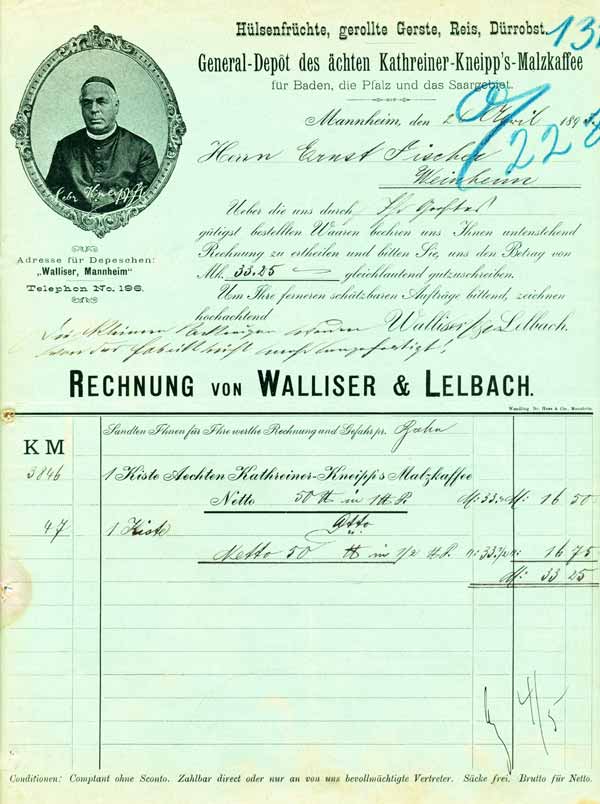 Hülsenfrüchte, gerollte Gerste, Reis, Dürrobst.
General-Depôt des ächten Kathreiner-Kneipp's-Malzkaffee
für Baden, die Pfalz und das Saargebiet.
Mannheim, den 2. April 189
Herrn Ernst Fischer
Weinheim
22
Seb. Kneipp
Adresse für Depeschen:
„Walliser, Mannheim"
Telephon No. 196.
Ueber die uns durch
gütigst bestellten Waaren beehren uns Ihnen untenstehend
Rechnung zu ertheilen und bitten Sie, uns den Betrag von
Mk. 33.25 gleichlautend gutzuschreiben.
Um Ihre ferneren schätzbaren Aufträge bittend, zeichnen
hochachtend Walliser & Lelbach.
Die kleineren werden
von der Fabrik nicht mehr angefertigt!
RECHNUNG VON WALLISER & LELBACH.
Sandten Ihnen für Ihre werthe Rechnung und Gefahr pr. Bahn
K M
3846 1 Kiste Aechten Kathreiner-Kneipp's Malzkaffee
Netto 50 ℔ in 1 ℔ P. M. 33.- M. 16 50
47 1 Kiste Dtto
Netto 50 ℔ in 1/2 ℔ P. 33.1/2 16 75
M. 33 25
4/5
Conditionen: Comptant ohne Sconto. Zahlbar direct oder nur an von uns bevollmächtigte Vertreter. Säcke frei. Brutto für Netto.